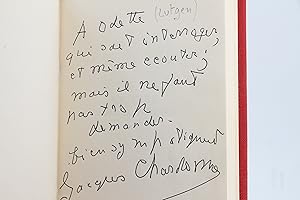 A Odette (Lutgen)
qui sait interroger,
et même écouter ;
mais il ne faut
pas trop
demander.
bien sympathiquement
Jacques Chardonne